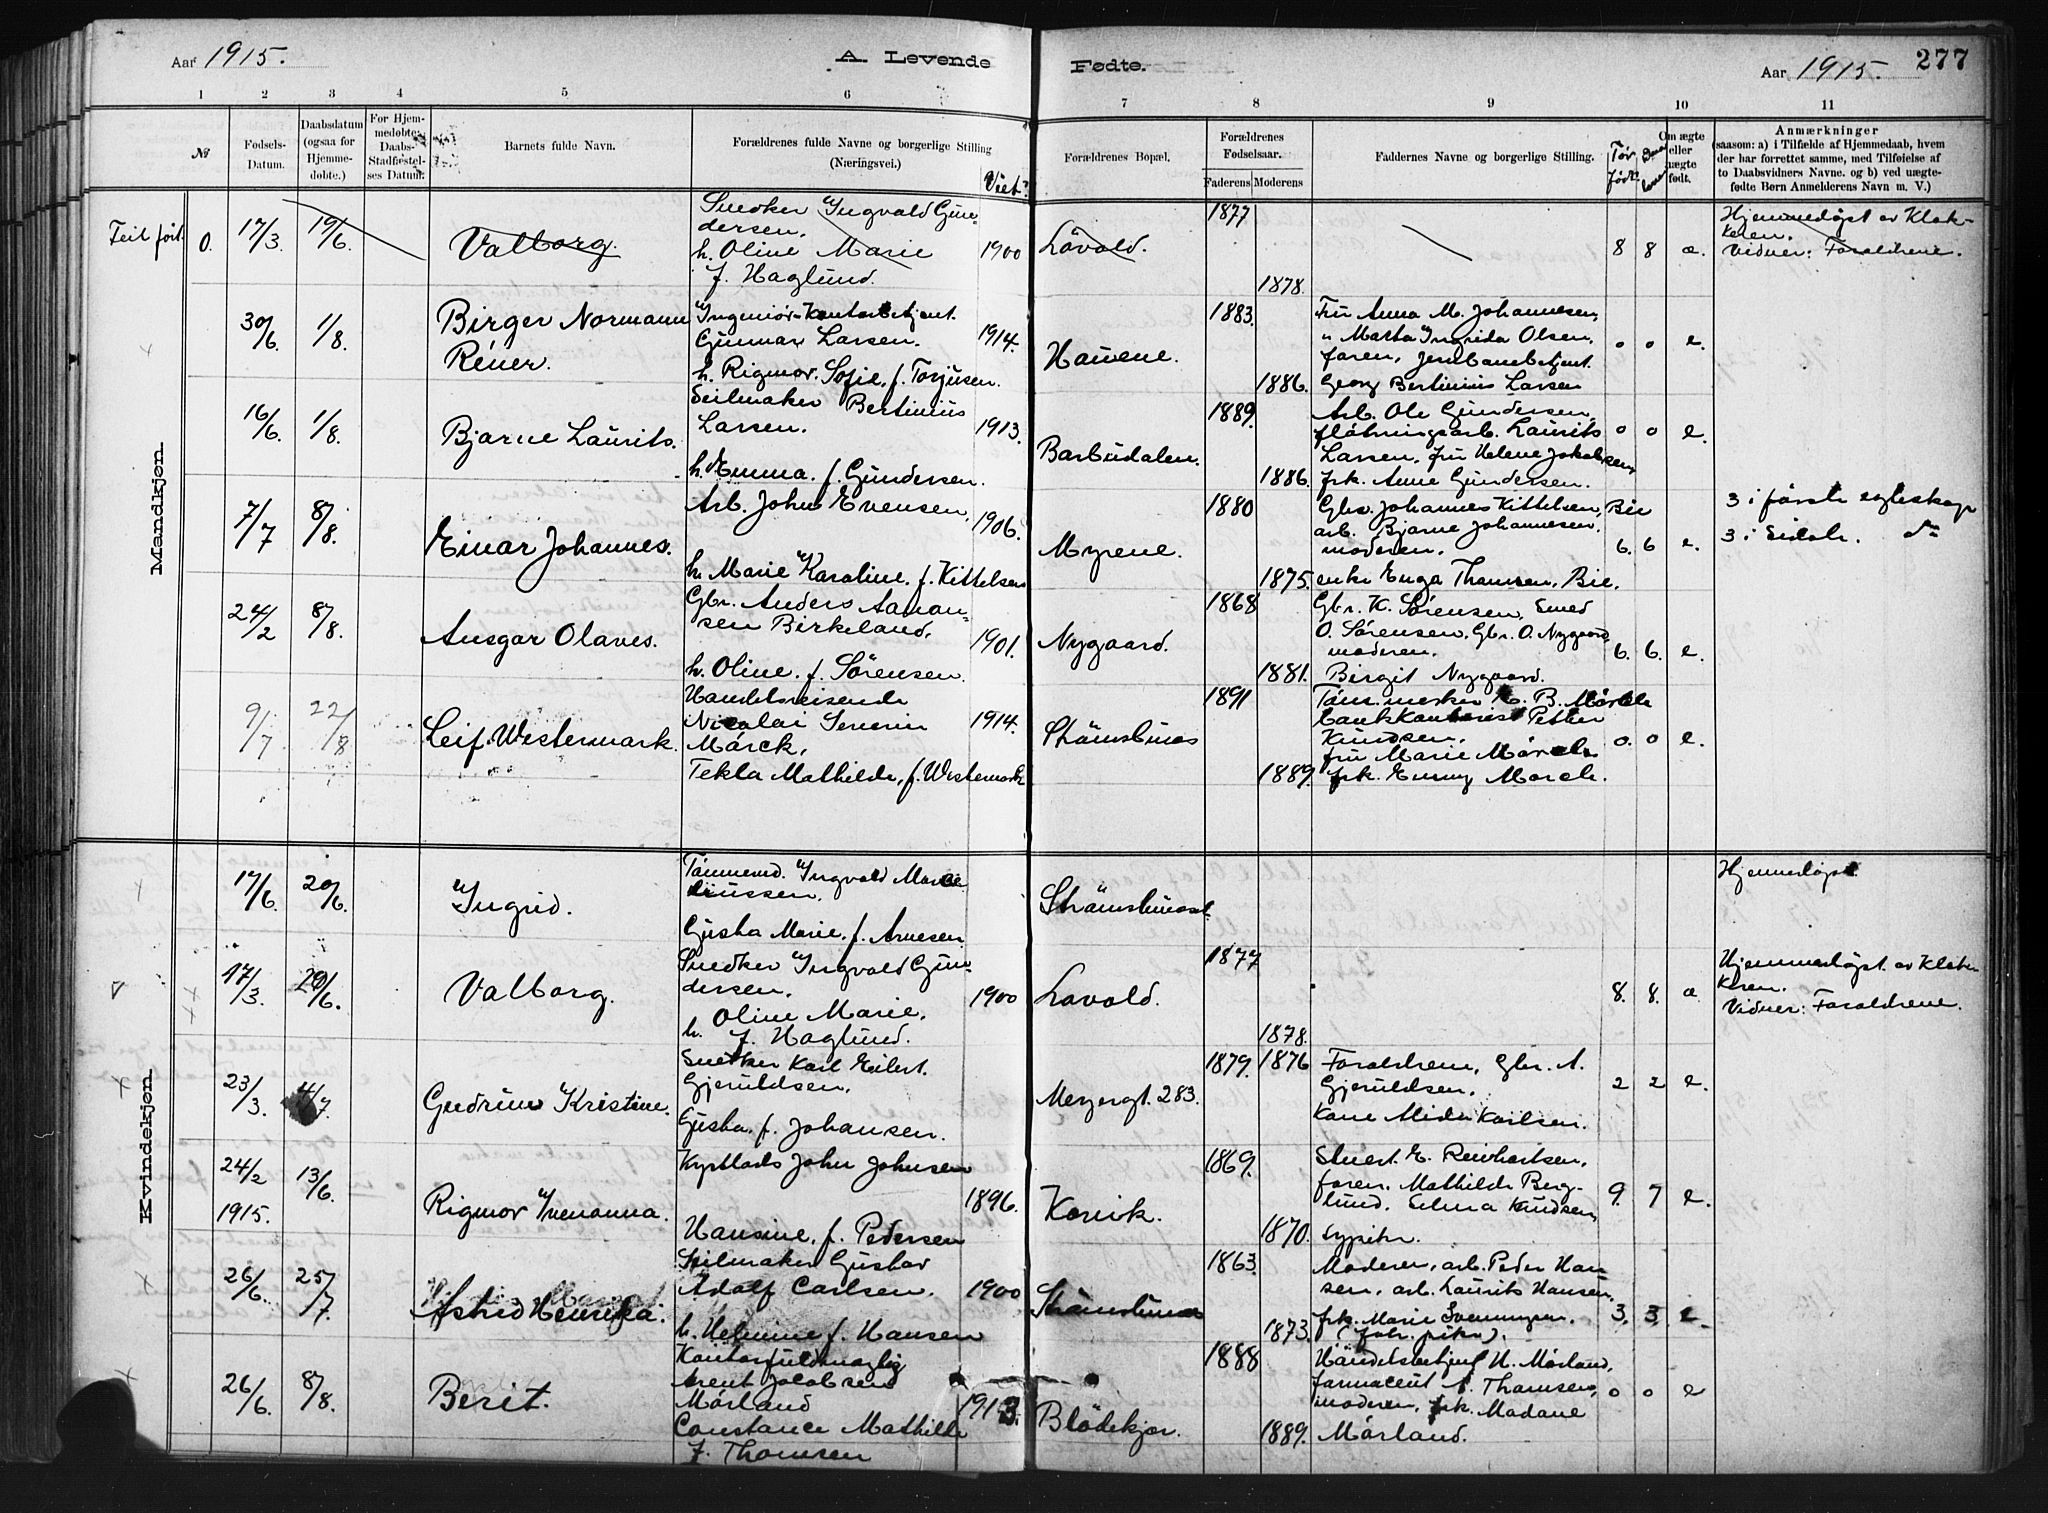 Aar 1915.
A. Levende Fødte.
Aar 1915.
277
1 2 3 4 5 6 7 8 9 10 11
№
Fødsels-
Datum.
Daabsdatum
(ogsaa for
Hjemme-
døbte.)
For Hjem-
medøbte:
Daabs-
Stadfæstel-
ses Datum.
Barnets fulde Navn.
Forældrenes fulde Navne og borgerlige Stilling
(Næringsvei.)
Viet
Forældrenes Bopæl.
Forældrenes
Fødselsaar.
Faderens Moderens
Faddernes Navne og borgerlige Stilling.
Før
født
Om ægte
eller
uægte
født.
Anmærkninger
(saasom: a) i Tilfælde af Hjemmedaab, hvem
der har forrettet samme, med Tilføielse af
to Daabsvidners Navne, og b) ved uægte-
fødte Børn Anmelderens Navn m. V.)
Mandkjøn.
Feil ført.
0. 17/3. 19/6.
Valborg.
Snedker Ingvald Gun-
dersen.
h. Oline Marie
f. Haglund.
1900
Låvold.
1877
1878.
8 8 æ.
Hjemmedøpt av Klok-
keren.
Vidner: Forældrene.
30/6. 1/8.
Birger Normann
Réner.
Ingeniør-Kontorbetjent.
Gunnar Larsen.
h. Rigmor. Sofie, f. Torjusen.
1914.
Hauene.
1883.
1886.
Fru Anna M. Johannesen,
" Marta Ingrida Olsen,
faren, Jernbanebetjent.
Georg Bertinius Larsen
0 0 e.
16/6. 1/8.
Bjarne Laurits.
Seilmaker Bertinius
Larsen.
h. Emma. f. Gundersen.
1913.
Barbudalen.
1889.
1886.
Arb. Ole Gundersen,
fløtningsarb. Laurits
Larsen, fru Helene Jakobsen,
frk. Anne Gundersen.
0 0 e.
7/7 8/8.
Einar Johannes.
Arb. John Evensen,
h. Marie Karoline. f. Kittelsen
1906.
Myrene.
1880
1875.
Gbr. Johannes Kittelsen, Bie
arb. Bjarne Johannesen.
moderen.
enke Enga Thomsen, Bie.
6. 6 e.
3 i første egteskap
3 i Sidste. do
24/2 8/8.
Ansgar Olaves.
Gbr. Anders Aanon-
sen Birkeland.
h. Oline. f. Sørensen.
1901.
Nygaard.
1868
1881.
Gbr. K. Sørensen, Smed
O. Sørensen, Gbr. O. Nygaard
moderen.
Birgit Nygaard.
6. 6. e.
9/7 22/8
Leif. Westermark.
Handelsreisende
Nicolai Severin
Mørck.
Tekla Mathilde, f. Westermark
1914.
Strømsbuas
1891
1889.
Tømmermerker E. B. Mørch
bankkontorist Petter
Knudsen.
fru Marie Mørch
frk. Emmy Mørch.
0. 0 e.
Kvindekjøn.
17/6. 20/6.
Ingrid.
Tømmermd. Ingvald
Gusta Marie. f. Arnesen
Strømsbuast.
Hjemmedøpt.
17/3. 20/6.
Valborg.
Snedker Ingvald Gun-
dersen.
h. Oline Marie.
f. Haglund.
1900
Lavold.
1877
1878.
8. 8. æ
Hjemmedøpt av Klok-
keren.
Vidner: Forældrene.
23/3. 4/7.
Gudrun Kristine.
Snekker Karl Eilert.
Gjeruldsen.
Gusta. f. Johansen.
Meyergt. 283.
1879. 1876
Forældrene, Gbr. A.
Gjeruldsen.
Kone Alida Karlsen.
2 2 e.
24/2 13/6.
1915.
Rigmor Irenanna.
Kystlods John Johnsen
Hansine, f. Pedersen
1896.
Korvik.
1869.
1870.
Stuert. E. Reinhartsen,
faren, Mathilde Berg-
lund. Selma Knudsen,
sypike.
9. 7 e.
26/6. 25/7.
Astrid Henrika.
Seilmaker Gustav
Adolf Carlsen.
h. Helmine f. Hansen
1900
Strømsbuaas
1863.
1873.
Moderen, arb. Peder Han-
sen, arb. Laurits Hansen,
frk. Marie Svenningsen.
(fabr. pike).
3. 3. e.
26/6. 8/8.
Berit.
Kontorfuldmægtig
Arent Jacobsen
Mørland
Constance Mathilde
f. Thomsen
1913.
Blødekjær.
1888
1889.
Handelsbetjent H. Mørland,
farmaceut A. Thomsen,
moderen, frk. Madane
Mørland.
0 0 e